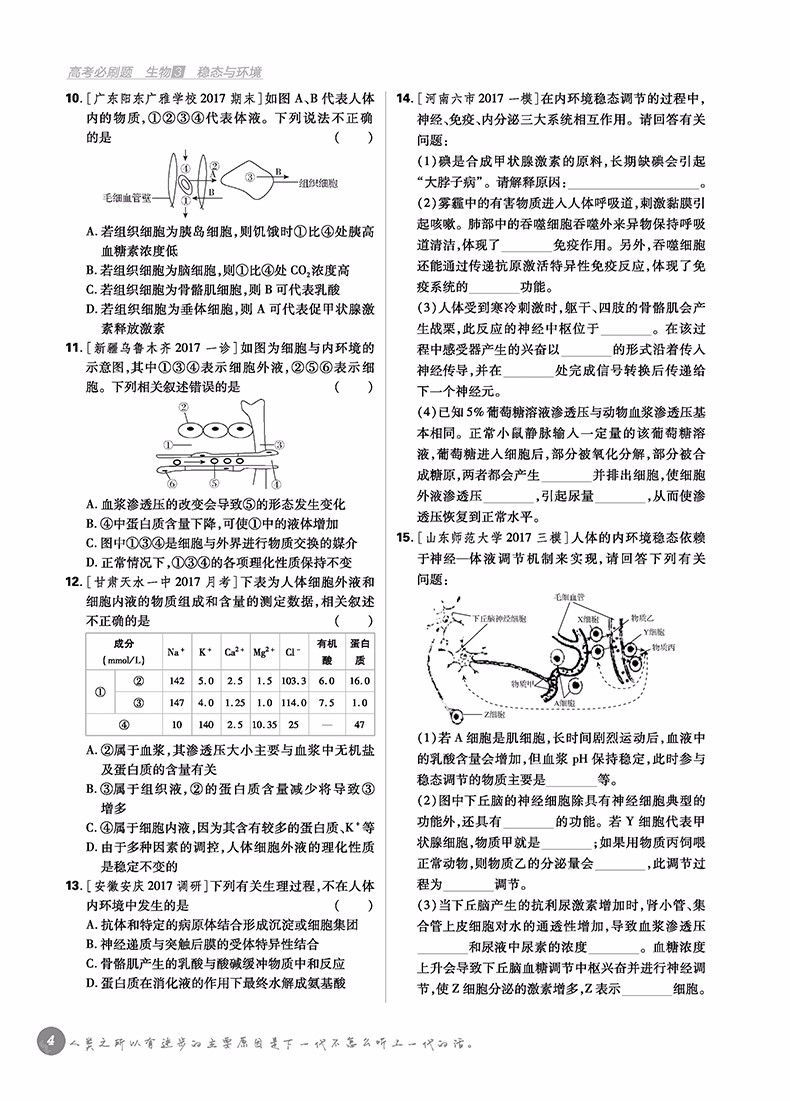 高考必刷题 生物3 稳态与环境
10. [广东阳东广雅学校2017期末]如图A、B代表人体
内的物质,①②③④代表体液。下列说法不正确
的是 ( )
④
②
A
B
③
B
组织细胞
毛细血管壁
①
A. 若组织细胞为胰岛细胞,则饥饿时①比④处胰高
血糖素浓度低
B. 若组织细胞为脑细胞,则①比④处CO₂浓度高
C. 若组织细胞为骨骼肌细胞,则B可代表乳酸
D. 若组织细胞为垂体细胞,则A可代表促甲状腺激
素释放激素
11. [新疆乌鲁木齐2017一诊]如图为细胞与内环境的
示意图,其中①③④表示细胞外液,②⑤⑥表示细
胞。下列相关叙述错误的是 ( )
②
①
③
⑥
⑤
④
A. 血浆渗透压的改变会导致⑤的形态发生变化
B. ④中蛋白质含量下降,可使①中的液体增加
C. 图中①③④是细胞与外界进行物质交换的媒介
D. 正常情况下,①③④的各项理化性质保持不变
12. [甘肃天水一中2017月考]下表为人体细胞外液和
细胞内液的物质组成和含量的测定数据,相关叙述
不正确的是 ( )
成分(mmol/L) Na⁺ K⁺ Ca²⁺ Mg²⁺ Cl⁻ 有机酸 蛋白质
① ② 142 5.0 2.5 1.5 103.3 6.0 16.0
③ 147 4.0 1.25 1.0 114.0 7.5 1.0
④ 10 140 2.5 10.35 25 — 47
A. ②属于血浆,其渗透压大小主要与血浆中无机盐
及蛋白质的含量有关
B. ③属于组织液,②的蛋白质含量减少将导致③
增多
C. ④属于细胞内液,因为其含有较多的蛋白质、K⁺等
D. 由于多种因素的调控,人体细胞外液的理化性质
是稳定不变的
13. [安徽安庆2017调研]下列有关生理过程,不在人体
内环境中发生的是 ( )
A. 抗体和特定的病原体结合形成沉淀或细胞集团
B. 神经递质与突触后膜的受体特异性结合
C. 骨骼肌产生的乳酸与酸碱缓冲物质中和反应
D. 蛋白质在消化液的作用下最终水解成氨基酸
14. [河南六市2017一模]在内环境稳态调节的过程中,
神经、免疫、内分泌三大系统相互作用。请回答有关
问题:
(1)碘是合成甲状腺激素的原料,长期缺碘会引起
“大脖子病”。请解释原因:________________。
(2)雾霾中的有害物质进入人体呼吸道,刺激黏膜引
起咳嗽。肺部中的吞噬细胞吞噬外来异物保持呼吸
道清洁,体现了________免疫作用。另外,吞噬细胞
还能通过传递抗原激活特异性免疫反应,体现了免
疫系统的________功能。
(3)人体受到寒冷刺激时,躯干、四肢的骨骼肌会产
生战栗,此反应的神经中枢位于________。在该过
程中感受器产生的兴奋以________的形式沿着传入
神经传导,并在________处完成信号转换后传递给
下一个神经元。
(4)已知5%葡萄糖溶液渗透压与动物血浆渗透压基
本相同。正常小鼠静脉输入一定量的该葡萄糖溶
液,葡萄糖进入细胞后,部分被氧化分解,部分被合
成糖原,两者都会产生________并排出细胞,使细胞
外液渗透压________,引起尿量________,从而使渗
透压恢复到正常水平。
15. [山东师范大学2017三模]人体的内环境稳态依赖
于神经—体液调节机制来实现,请回答下列有关
问题:
毛细血管
下丘脑神经细胞
X细胞
物质乙
Y细胞
物质丙
物质甲
A细胞
Z细胞
(1)若A细胞是肌细胞,长时间剧烈运动后,血液中
的乳酸含量会增加,但血浆pH保持稳定,此时参与
稳态调节的物质主要是________等。
(2)图中下丘脑的神经细胞除具有神经细胞典型的
功能外,还具有________的功能。若Y细胞代表甲
状腺细胞,物质甲就是________;如果用物质丙饲喂
正常动物,则物质乙的分泌量会________,此调节过
程为________调节。
(3)当下丘脑产生的抗利尿激素增加时,肾小管、集
合管上皮细胞对水的通透性增加,导致血浆渗透压
________和尿液中尿素的浓度________。血糖浓度
上升会导致下丘脑血糖调节中枢兴奋并进行神经调
节,使Z细胞分泌的激素增多,Z表示________细胞。
4 人类之所以有进步的主要原因是下一代不怎么听上一代的话。